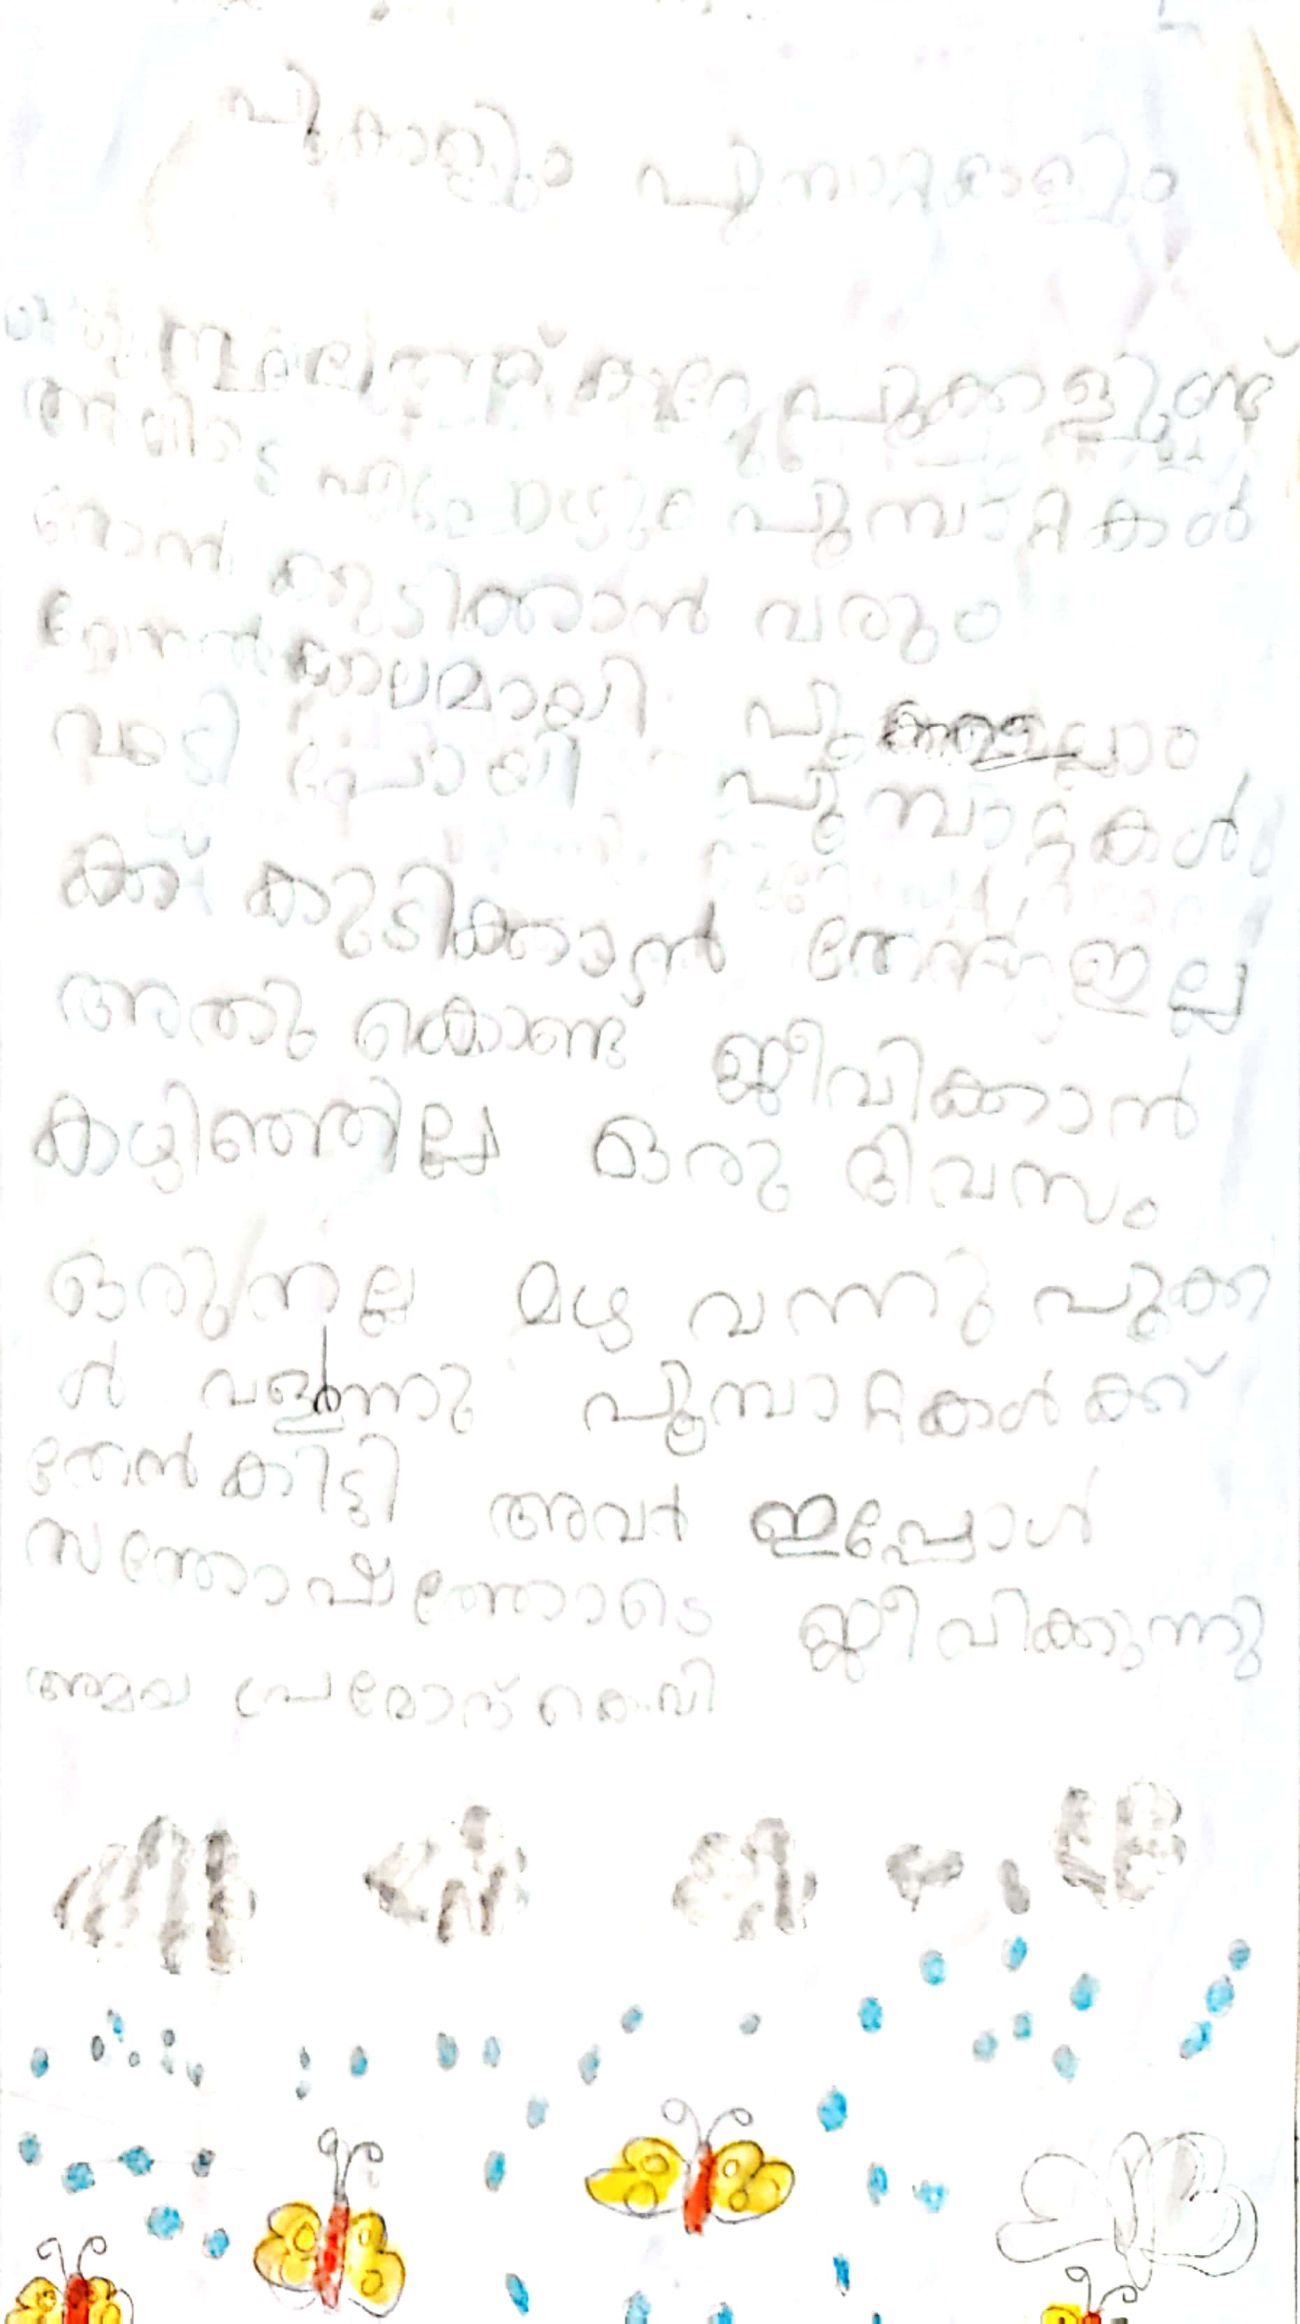 പൂക്കളും പൂമ്പാറ്റകളും
ഒരു സ്ഥലത്ത് കുറേ പൂക്കളുണ്ട്
അവിടെ എപ്പോഴും പൂമ്പാറ്റകൾ
തേൻ കുടിക്കാൻ വരും
വേനൽകാലമായി പൂക്കളെല്ലാം
വാടി പോയി പൂമ്പാറ്റകൾ
ക്ക് കുടിക്കാൻ തേൻ ഇല്ല
അതു കൊണ്ട് ജീവിക്കാൻ
കഴിഞ്ഞില്ല ഒരു ദിവസം
ഒരു നല്ല മഴ വന്നു പൂക്ക
ൾ വളർന്നു പൂമ്പാറ്റകൾക്ക്
തേൻ കിട്ടി അവർ ഇപ്പോൾ
സന്തോഷത്തോടെ ജീവിക്കുന്നു
അമയ പ്രമോദ് കെ.വി